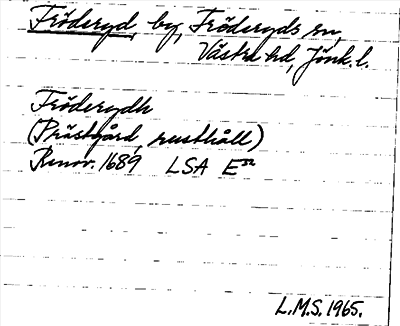 Fröderyd, by, Fröderyds sn,
Västra hd, Jönk. l.
Fröderydh
(Prästgård, rusthåll)
Renov. 1689 LSA E32
L.M.S. 1965.